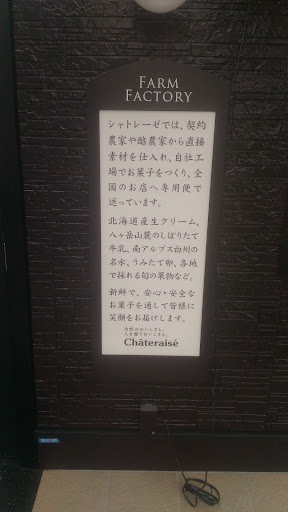 FARM
FACTORY
シャトレーゼでは、契約
農家や酪農家から直接
素材を仕入れ、自社工
場でお菓子をつくり、全
国のお店へ専用便で
送っています。
北海道産生クリーム、
八ヶ岳山麓のしぼりたて
牛乳、南アルプス白州の
名水、うみたて卵、各地
で採れる旬の果物など。
新鮮で、安心・安全な
お菓子を通して皆様に
笑顔をお届けします。
自然のおいしさと、
人を想うおいしさと。
Châteraisé